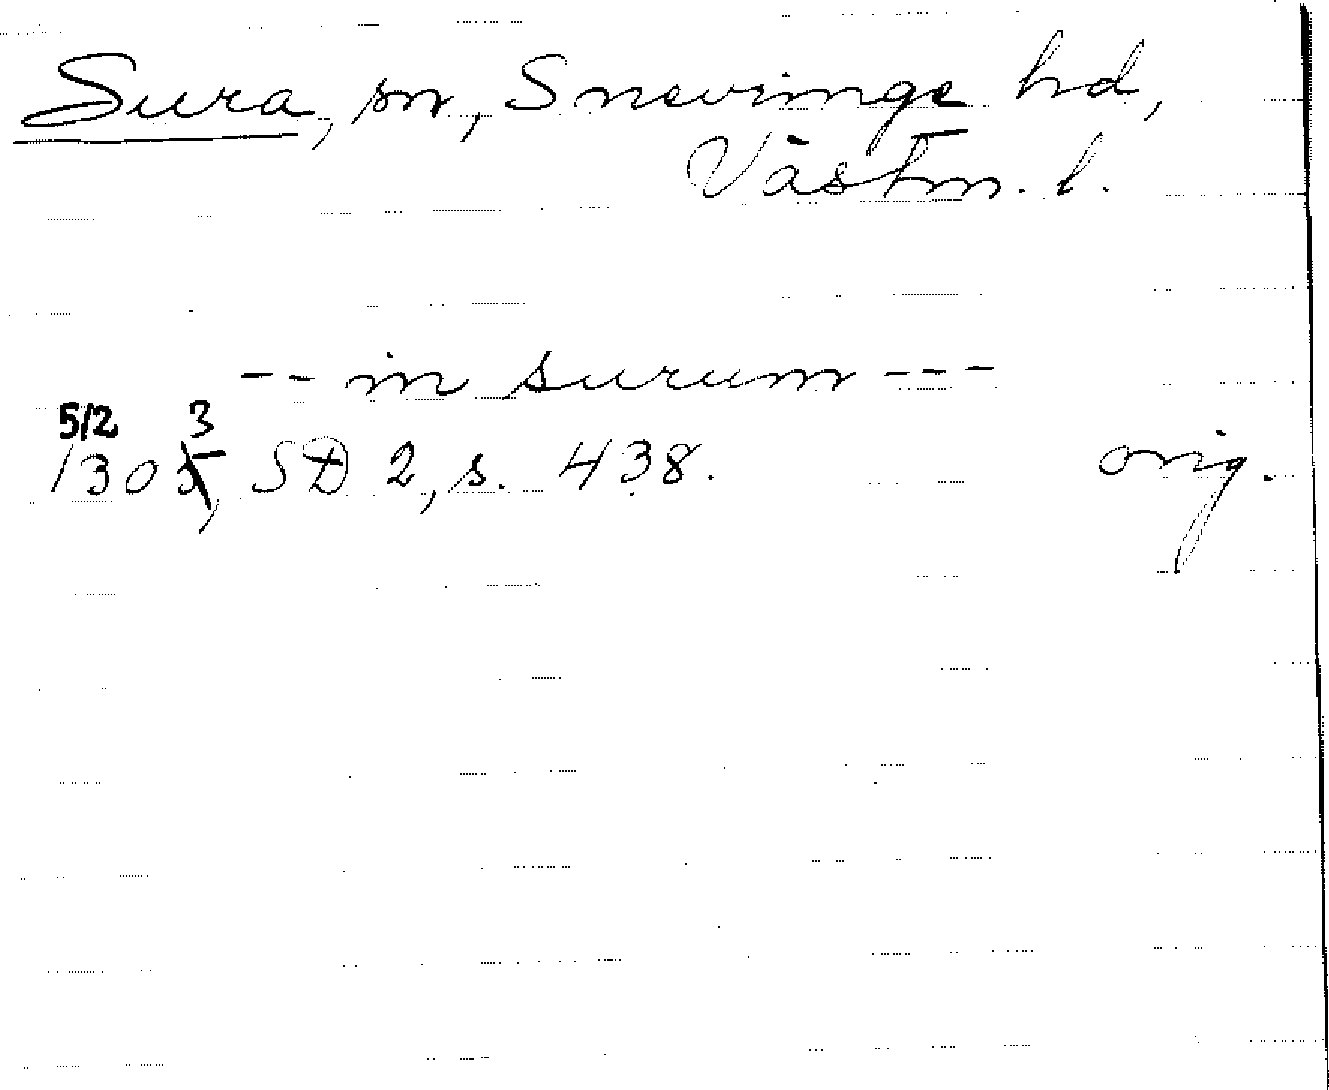 Sura, sn, Snevinge hd,
Västm. l.
-- in surum ---
5/2 3
1305, SD 2, s. 438. orig.